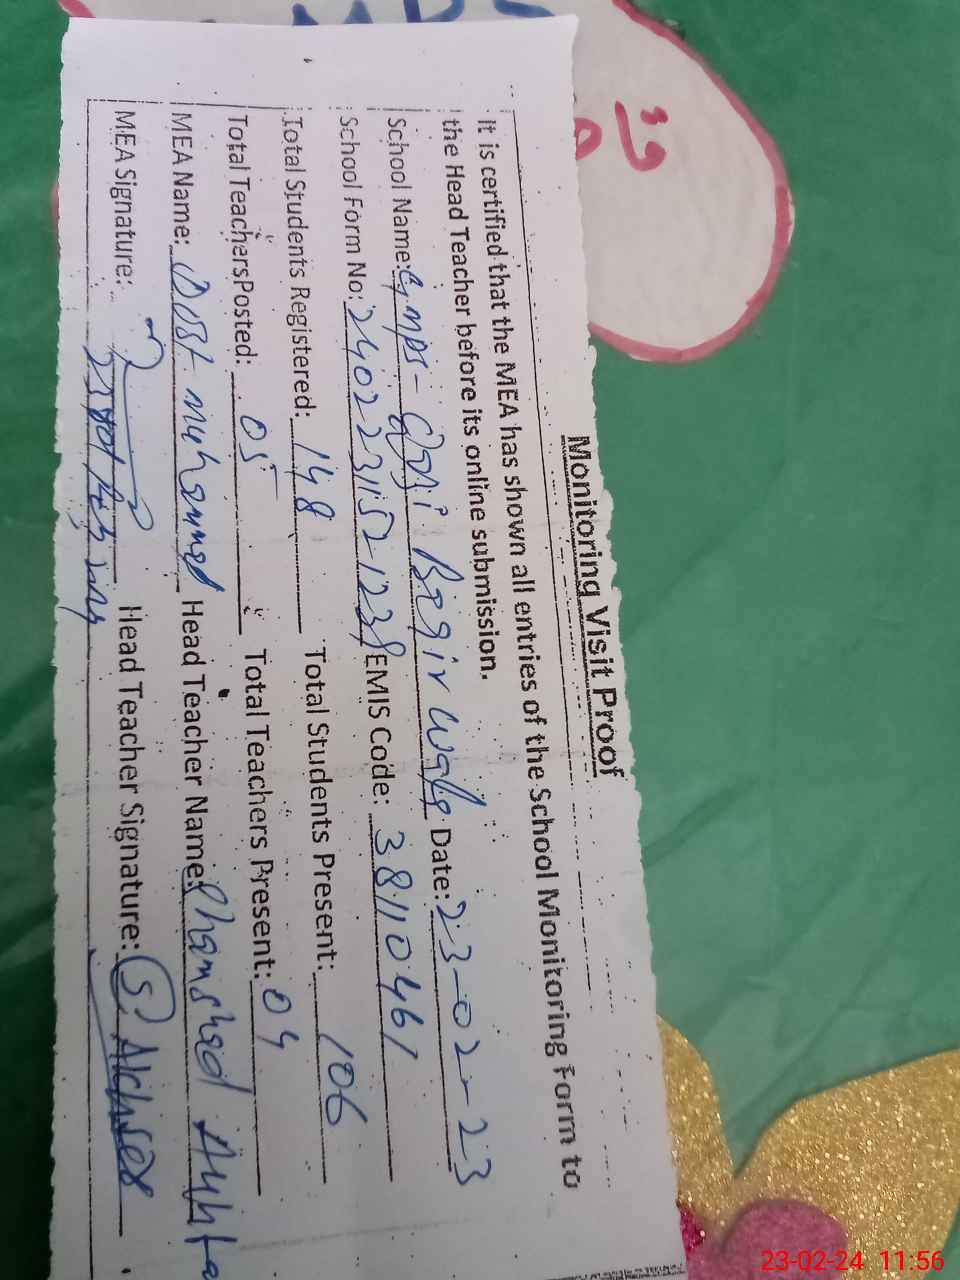 Monitoring Visit Proof
It is certified that the MEA has shown all entries of the School Monitoring Form to
the Head Teacher before its online submission.
School Name: GMPS - Qazi Baqir wala Date: 23-02-23
School Form No: 24022311521238 EMIS Code: 38110461
Total Students Registered: 148 Total Students Present: 106
Total TeachersPosted: 05 Total Teachers Present: 04
MEA Name: Dost Muhammad Head Teacher Name: Shamshad Akhta
MEA Signature: Head Teacher Signature: S. Akhter
23-02-24 11:56